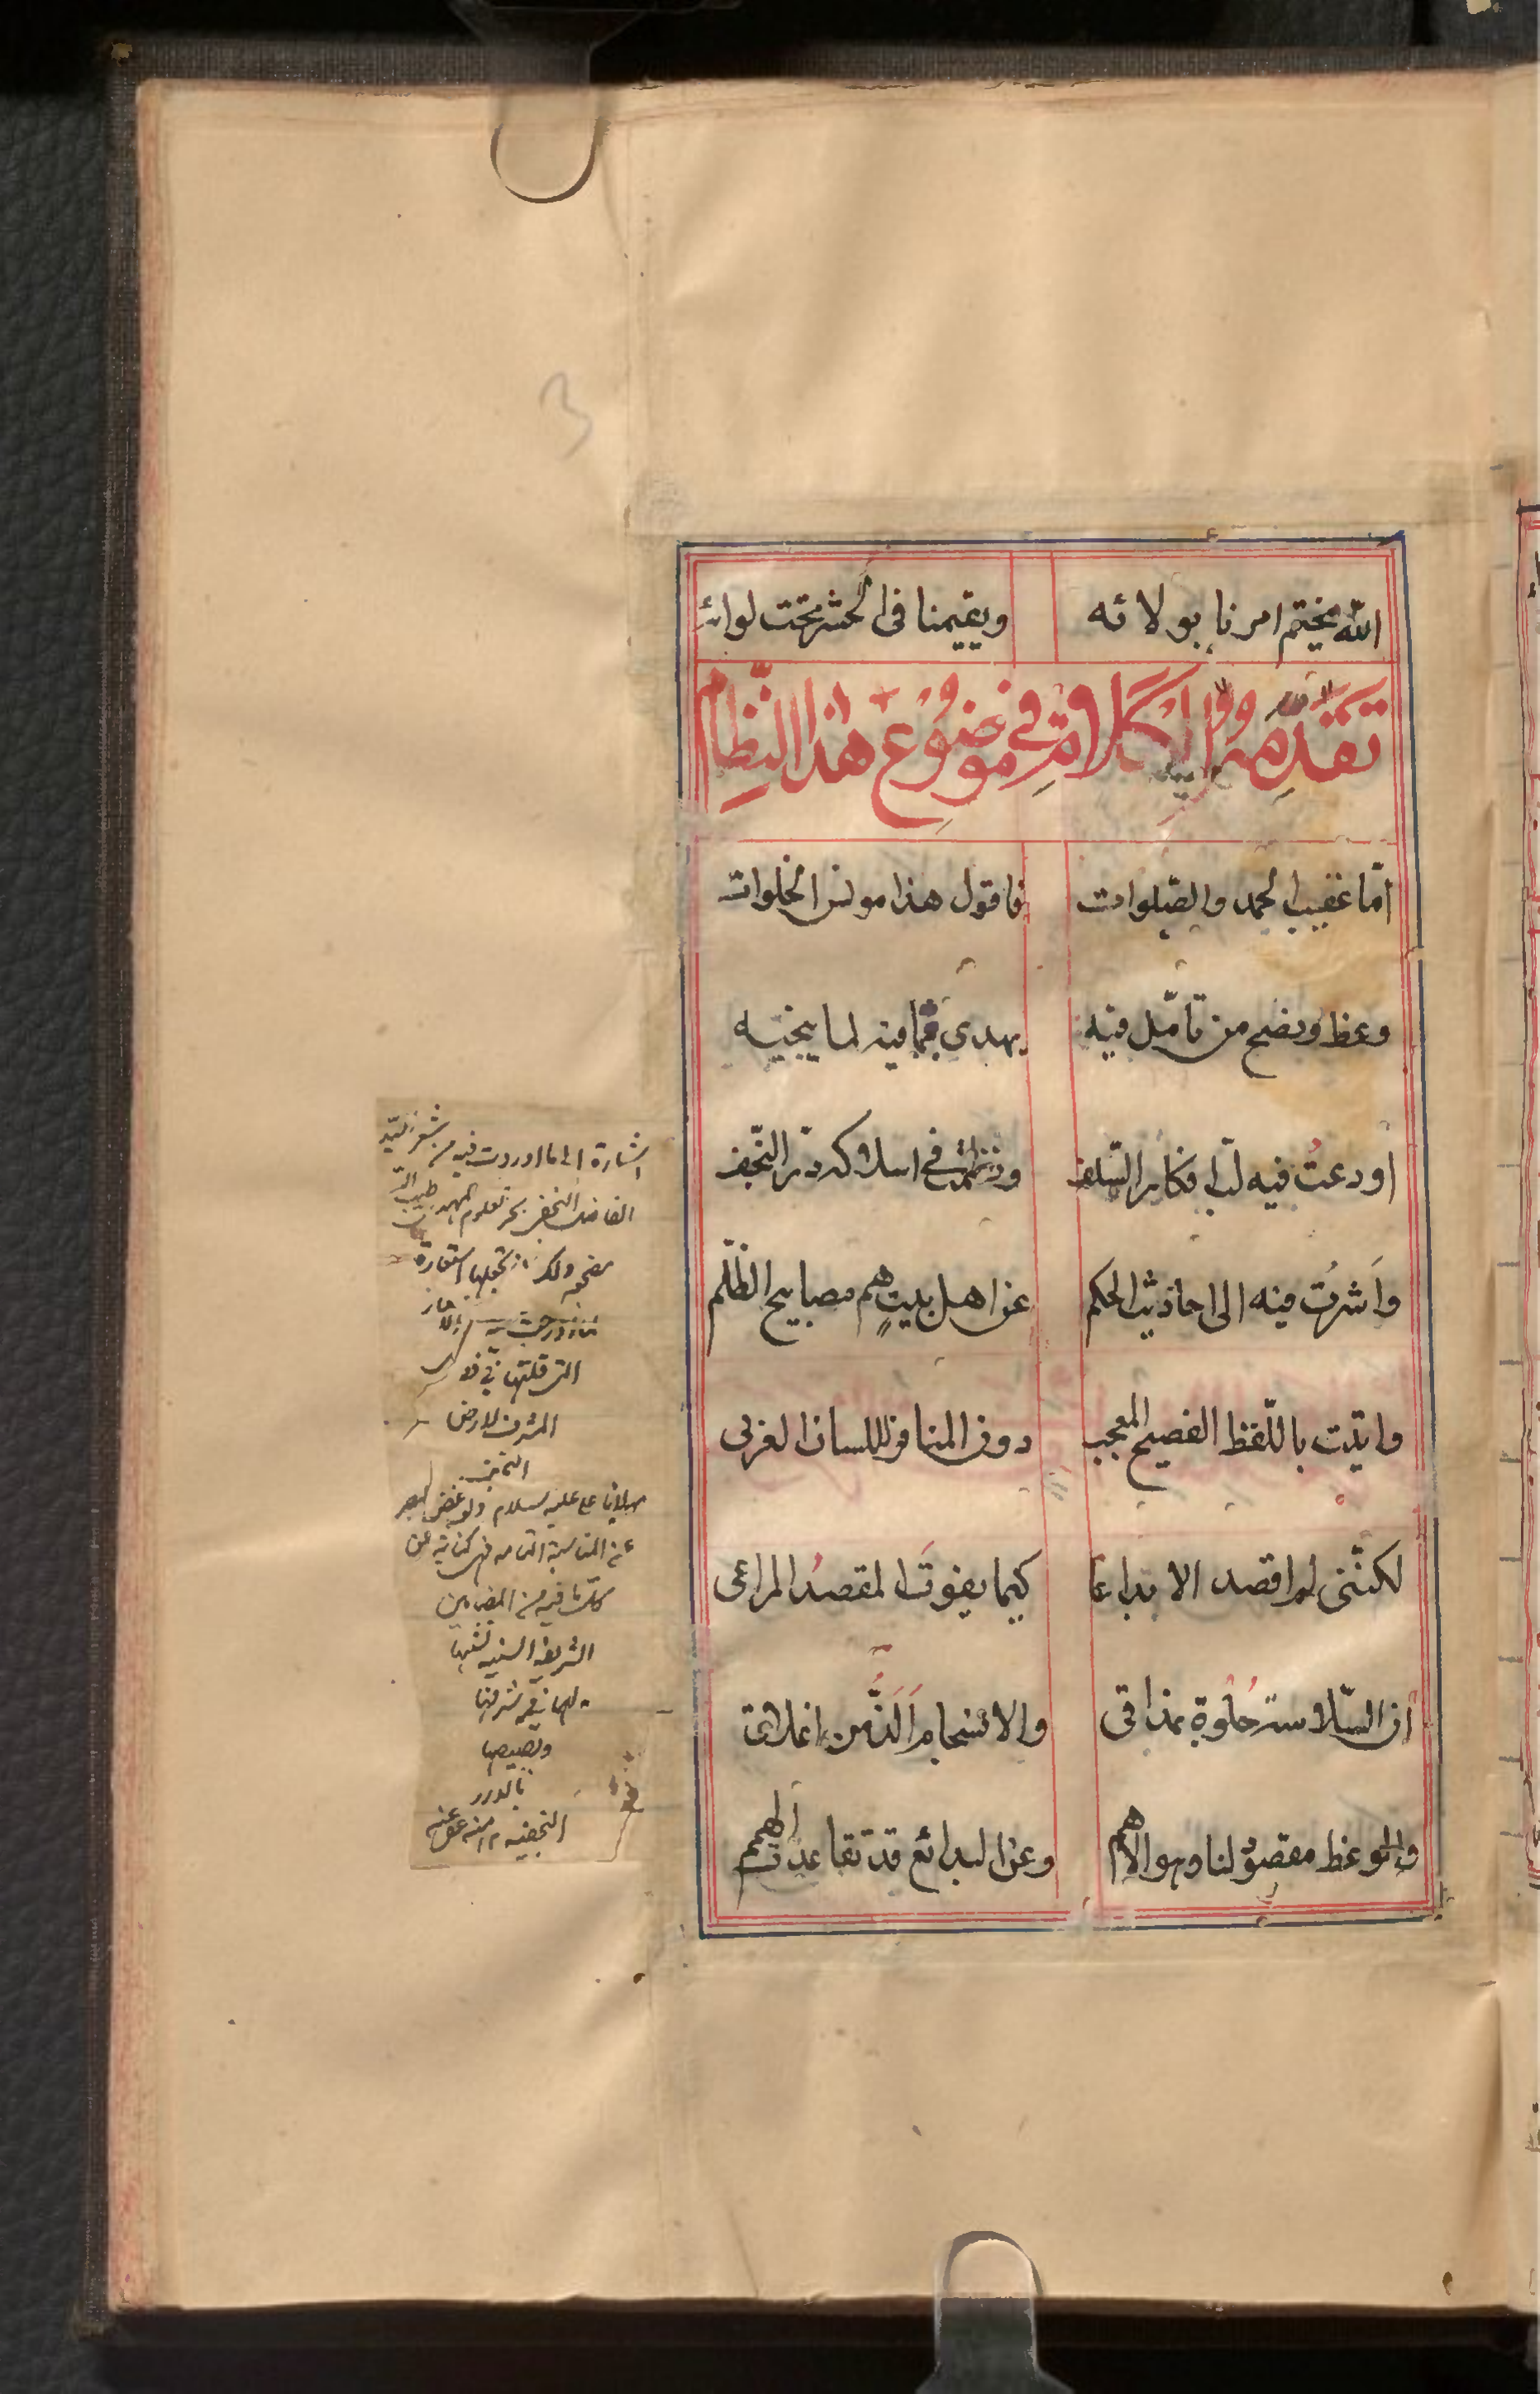 الله يختم امرنا بولائه ويقيمنا فى الحشر تحت لوائه
تقدمة الكلام فى موضوع هذا النظام
امّا عقيب الحمد والصّلوات فاقول هذا مونس الخلوات
وعظ ونصح من تامّل فيه يهدى بما فيه لما ينجيه
اودعتُ فيه لبّ افكار السّلف ونظمت فى اسلاكه درّ النّجف
واَشرت فيه الى احاديث الحكم عن اهل بيتٍ هم مصابيح الظّلم
واتيت باللّفظ الفصيح المعجب دون المنافر للسان العربى
لكنّنى لم اقصد الابداعا كيما يفوتَ المقصدُ المراعى
ان السّلاسة حُلوة بمذاقى والانسجام اَلَذُّ من اغلاق
والوعظ مقصودٌ لنا وهو الاهم وعن البدائع قد تقاعدت الهمم
اشارة الى ما اوردت فيه من شعر السّيد
الفاضل النجفى بحر العلوم المهدى طيب الله
مضجعه ولك ان تجعلها استعارة
التى قلتها فى
المشرف لارض
النجف
مولانا على عليه السلام ولو غض البصر
عن المناسبة التامه فهى كناية عن
كلّ ما فيه من المضامين
الشريفه السنيه لشبهها
بها فى شرفها
وبصيصها
بالدرر
النجفيه ١٢ منه عفى عنه
3